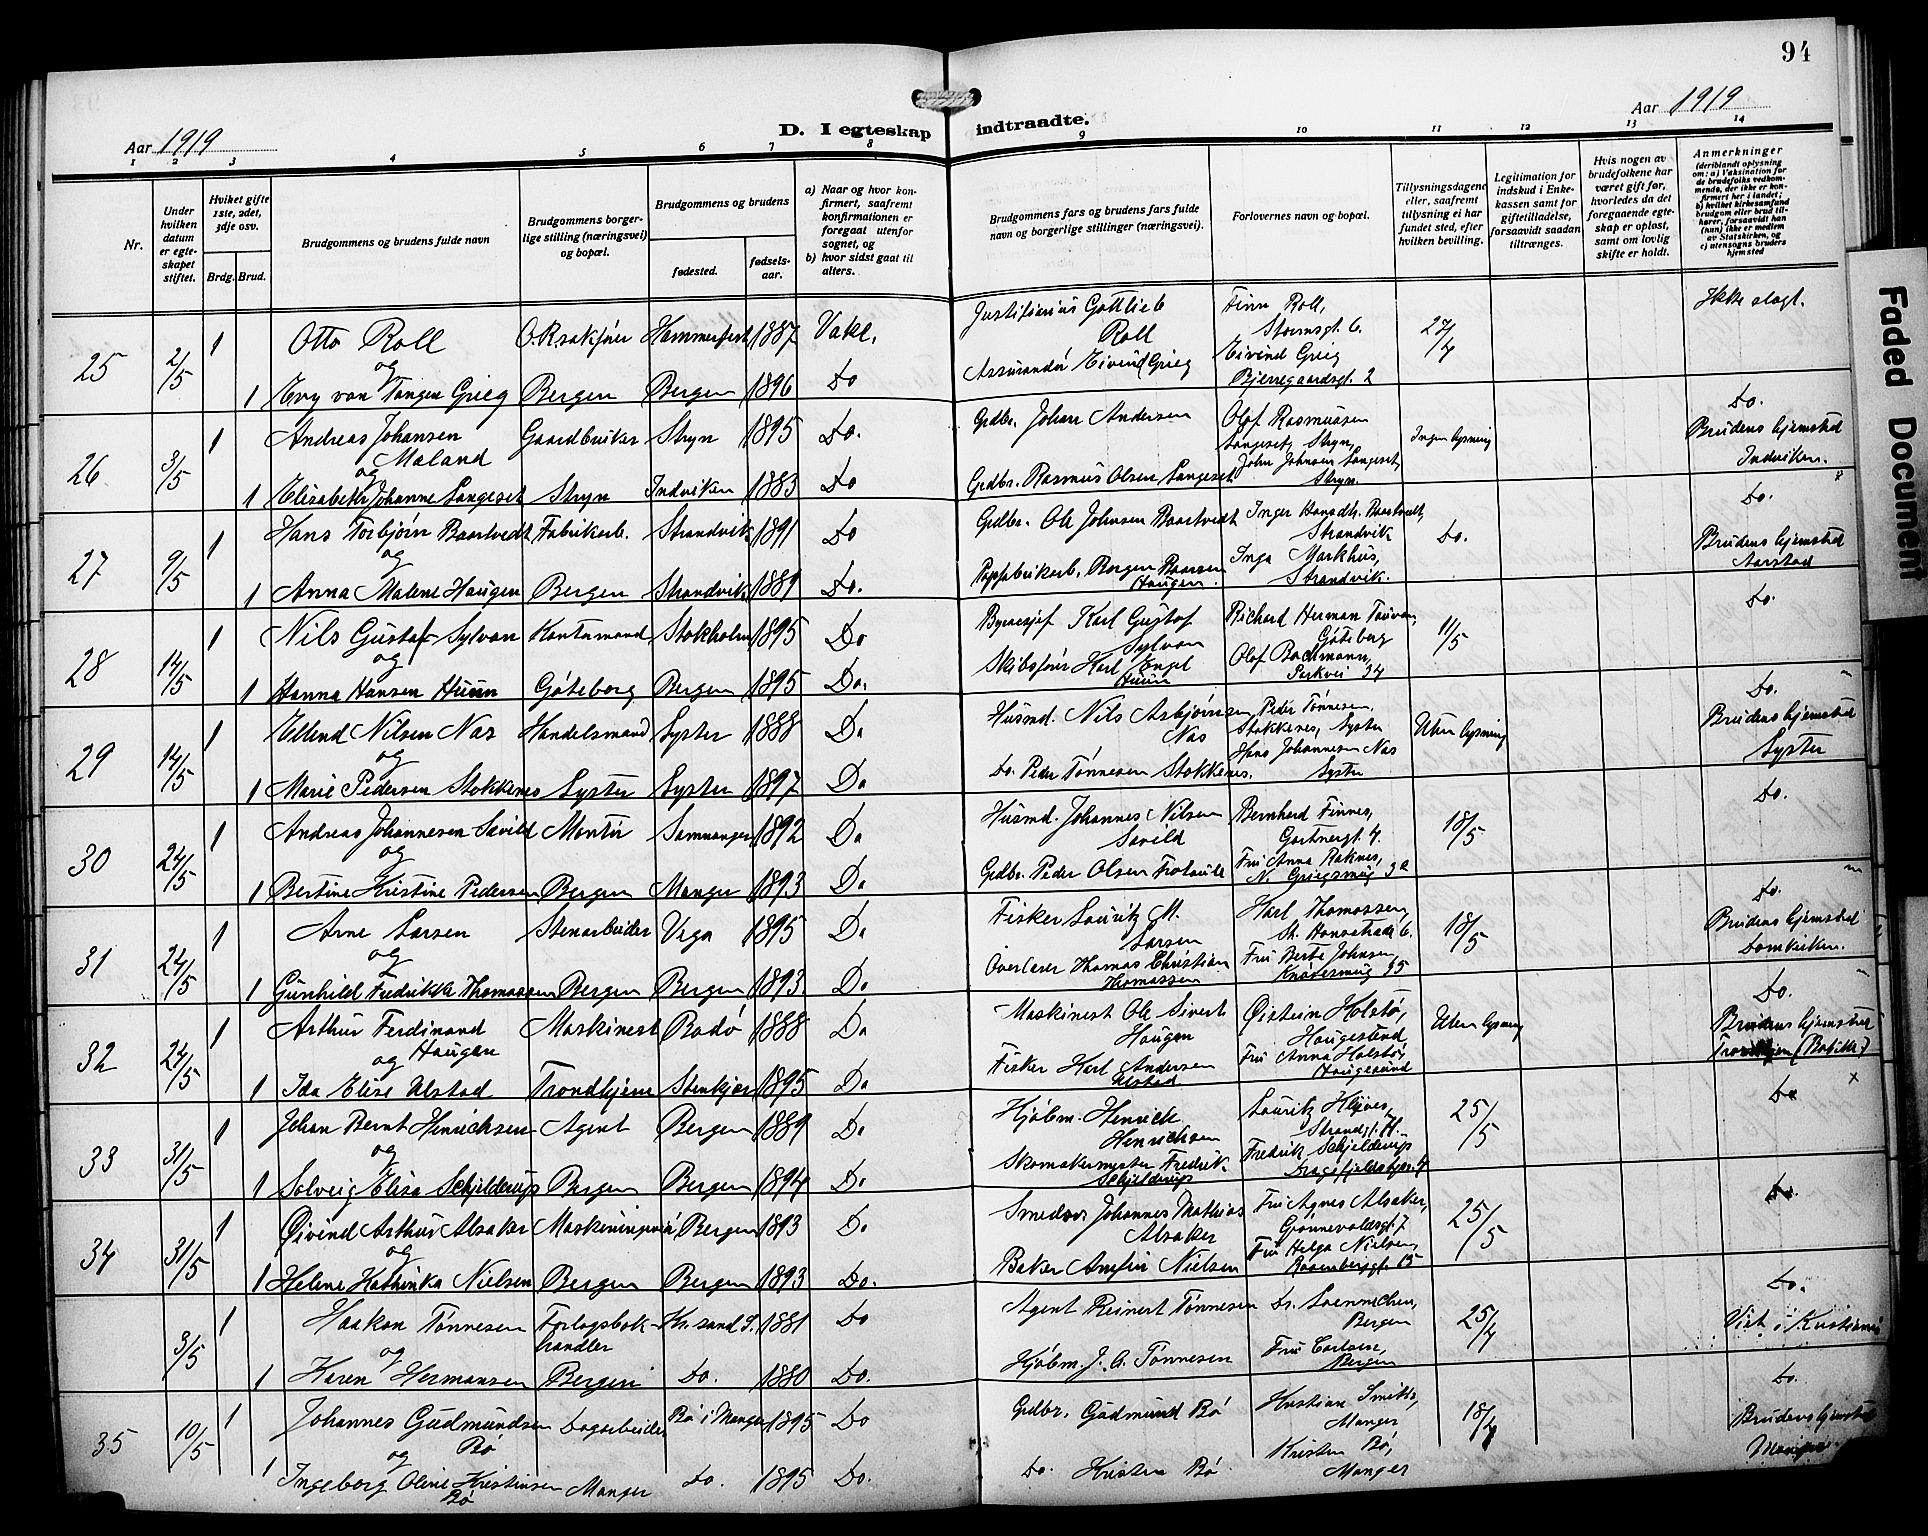 94
Aar 1919
D. I egteskap indtraadte.
Aar 1919
1 2 3 4 5 6 7 8 9 10 11 12 13 14
Nr.
Under hvilken datum er egteskapet stiftet.
Hviket gifte 1ste, 2det, 3dje osv.
Brdg. Brud.
Brudgommens og brudens fulde navn
Brudgommens borgerlige stilling (næringsvei) og bopæl.
Brudgommens og brudens
fødested.
fødselsaar.
a) Naar og hvor konfirmert, saafremt konfirmationen er foregaat utenfor sognet, og
b) hvor sidst gaat til alters.
Brudgommens fars og brudens fars fulde navn og borgerlige stillinger (næringsvei).
Forlovernes navn og bopæl.
Tillysningsdagene eller, saafremt tillysning ei har fundet sted, efter hvilken bevilling.
Legitimation for indskud i Enkekassen samt for giftetilladelse, forsaavidt saadan tiltrænges.
Hvis nogen av brudefolkene har været gift før, hvorledes da det foregaaende egteskap er opløst, samt om lovlig skifte er holdt.
Anmerkninger
(deriblandt oplysning om: a) Vaksination for de brudefolks vedkommende, der ikke er konfirmert her i landet; b) hvilket kirkesamfund brudgom eller brud tilhører, forsaavidt han (hun) ikke er medlem av Statskirken, og c) utensogns bruders hjemsted
25 2/5 1 Otto Roll O.R.sakfører Hammerfest 1887 Vakl. Justitiarius Gottlieb Roll Finn Roll, Stormsgt. 6. 27/4 Ikke slegt.
og
1 Evy von Tangen Grieg Bergen Bergen 1896 Do Assurandør Eivind Grieg Eivind Grieg Bjerregaardsgt. 2
26 3/5 1 Andreas Johansen Maland Gaardbruker Stryn 1895 Do. Grdbr. Johan Andersen Olof Rasmussen Langeset, Stryn, Ingen lysning Do. Brudens hjemsted Indviken.
og
1 Elisabeth Johanne Langeset Stryn Indviken 1883 Do Grdbr. Rasmus Olsen Langeset John Johnsen Langeset, Stryn.
27 9/5 1 Hans Torbjørn Baartvedt Fabrikarb. Strandvik 1891 Do Grdbr. Ole Johnsen Baartvedt Inger Hansdtr. Baartvedt, Strandvik Do. Do. Brudens hjemsted Aarstad
og
1 Anna Malene Haugen Bergen Strandvik 1889 Do. Papfabrikarb. Haugen Inga Markhus, Strandvik.
28 14/5 1 Nils Gustaf Sylvan Kontormand Stokholm 1895 Do Karl Gustof Sylvan Richard Herman Göteborg 11/5 Do.
og
1 Hanna Hansen Huun Göteborg Bergen 1895 Do. Skibsfører Karl Engel Huun Olof Bachmann, Parkvei 34
29 14/5 1 Ellend Nilsen Nas Handelsmand Lyster 1888 Do Husmd. Nils Asbjørnsen Nas Peder Tønnesen, Stokkenes, Lyster Uten lysning Do. Brudens hjemsted Lyster
og
1 Marie Pedersen Stokkenes Lyster Lyster 1897 Do Do. Peder Tønnesen Stokkenes. Hans Johannesen Nas Lyster
30 24/5 1 Andreas Johannesen Savild Montør Samnanger 1892 Do Husmd. Johannes Nilsen Savild Bernhard Finnes, Gartnergt. 4. 18/5 Do.
og
1 Bertine Kristine Pedersen Bergen Manger 1893 Do Grdbr. Peder Olsen Fru Anna Raknes,
31 24/5 1 Arne Larsen Stenarbeider Vega 1895 Do Fisker Lauritz M. Larsen Karl Thomassen, 18/5 Do. Brudens hjemsted Domkirken.
og
1 Gunhild Fredrikke Thomassen Bergen Bergen 1893 Do Overlærer Thomas Christian Thomassen Fru Berte Johnsen, Knøsesmug 35
32 24/5 1 Arthur Ferdinand Haugan Maskinist Rødø 1888 Do Maskinist Ole Sivert Haugan Øistein Holstø, Haugesund Uten lysning Do. Brudens hjemsted
og
1 Ida Elise Ulstad Trondhjem Stenkjær 1895 Do Fisker Karl Andersen Ulstad Fru Anna Holstø, Haugesund
33 31/5 1 Johan Bernt Henrichsen Agent Bergen 1889 Do Kjøbm. Henrick Henrichsen Lauritz 25/5 Do x
og
1 Solveig Elisa Schjelderup Bergen Bergen 1894 Do Skomakermester Fredrik Schjelderup Fredrik Schjelderup
34 31/5 1 Øivind Arthur Alsaker Bergen 1893 Do Johannes Mathias Alsaker Fru Agnes Alsaker, 25/5 Do.
og
1 Helene Kathinka Nielsen Bergen Bergen 1893 Do. Baker Nielsen Fru Helga Nielsen, Rosenberggt. 15
3/5 1 Haakon Tønnesen Forlagsbokhandler Kr.sand S. 1881 Do Agent Reinert Tønnesen Dr. Bergen 25/4 Do. Viet i Kristiania
og
1 Karen Hermansen Bergen Do. 1880 Do. Kjøbm. J. A. Tønnesen Fru Bergen
35 10/5 1 Johannes Gudmundsen Bø Dagarbeider Bø i Manger 1895 Do Grdbr. Gudmund Bø Kristian Manger 18/4 Do. Brudens hjemsted
og
1 Ingeborg Oline Kristensen Bø Manger Do. 1895 Do. Do. Kristen Bø Kristen Bø, Manger
Faded Document